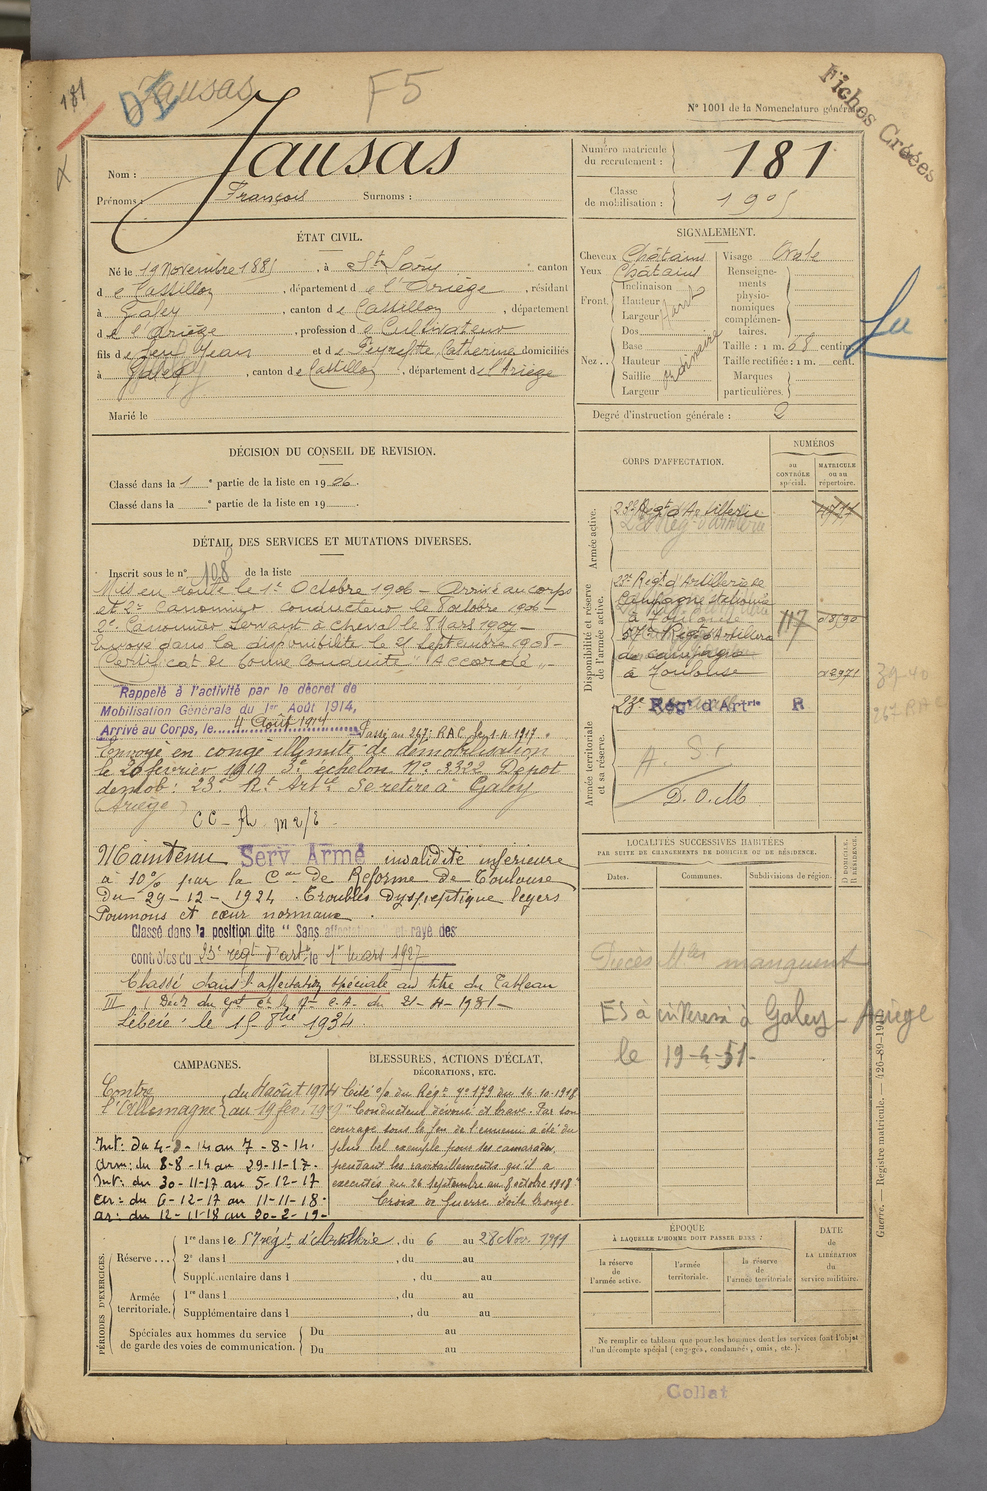 181
Jausas
F5
Fiches Créées
N° 1001 de la Nomenclature générale
Nom : Jausas
Prénoms : François Surnoms :
Numéro matricule du recrutement : 181
Classe de mobilisation : 1905
ÉTAT CIVIL.
Né le 19 Novembre 1885, à St Lary canton
de Castillon, département de l'Ariège, résidant
à Galey, canton de Castillon, département
de l'Ariège, profession de Cultivateur
fils de feu Jean et de Peyrette Catherine domiciliés
à Galey, canton de Castillon, département de l'Ariège
Marié le
SIGNALEMENT.
Cheveux Châtains
Yeux Châtains
Front. Inclinaison
Hauteur haut
Largeur
Nez.. Dos
Base
Hauteur ordinaire
Saillie
Largeur
Visage Ovale
Renseignements physionomiques complémentaires.
Taille : 1 m. 68 centim.
Taille rectifiée : 1 m. cent.
Marques particulières
Degré d'instruction générale : 2
DÉCISION DU CONSEIL DE REVISION.
Classé dans la 1 e partie de la liste en 1906.
Classé dans la e partie de la liste en 19
DÉTAIL DES SERVICES ET MUTATIONS DIVERSES.
Inscrit sous le n° 108 de la liste
Mis en route le 1er Octobre 1906 – Arrivé au corps
et 2e Canonnier conducteur le 8 octobre 1906 –
2e Canonnier Servant à cheval le 8 Mars 1907 –
Envoyé dans la disponibilité le 25 Septembre 1908 –
Certificat de bonne conduite "Accordé" –
Rappelé à l'activité par le décret de
Mobilisation Générale du 1er Août 1914,
Arrivé au Corps, le 4 Août 1914
Passé au 267e RAC le 1-4-1917.
Envoyé en congé illimité de démobilisation
le 20 février 1919 3e échelon N° 3322 Dépot
démob: 23e Rt Artie Se retire à Galey
(Ariège)
Maintenu Serv Armé invalidité inférieure
à 10% par la Con de Réforme de Toulouse
Du 29-12-1924. Troubles dyspeptique légers
Poumons et cœur normaux.
Classé dans la position dite "Sans affectation et rayé des
contrôles du 23e régt d'artie le 1er mars 1927
Classé dans l'affectation spéciale au titre du Tableau
III
Libéré le 15 8bre 1934.
CORPS D'AFFECTATION.
NUMÉROS
au CONTRÔLE spécial.
MATRICULE ou au répertoire.
Armée active.
23e Régt d'Artillerie
Disponibilité et réserve de l'armée active.
23e Régt d'Artillerie de
Campagne stationné
à Toulouse
117
57e Régt d'Artillerie
de campagne
à Toulouse
02971
Armée territoriale et sa réserve.
23e Régt d'Artrie R
A. S.
D. O. M
39-40
267 RAC
LOCALITÉS SUCCESSIVES HABITÉES
PAR SUITE DE CHANGEMENTS DE DOMICILE OU DE RÉSIDENCE.
Dates.
Communes.
Subdivisions de région.
D DOMICILE. R RÉSIDENCE.
Pièces Mles manquent
ES à à Galey - Ariège
le 19-4-51-
CAMPAGNES.
Contre l'Allemagne du 4 août 1914
au 19 fév. 1919
Int: du 4-8-14 au 7-8-14.
Arm: du 8-8-14 au 29-11-17.
Int: du 30-11-17 au 5-12-17
ar: du 6-12-17 au 11-11-18-
ar: du 12-11-18 au 20-2-19-
BLESSURES, ACTIONS D'ÉCLAT,
DÉCORATIONS, ETC.
Cité o/o du Régt n° 179 du 16-10-1918
"Conducteur dévoué et brave. Par son
courage sous le feu de l'ennemi a été du
plus bel exemple pour ses camarades,
pendant les ravitaillements qu'il a
exécutés du 26 Septembre au 8 octobre 1918"
Croix de Guerre étoile bronze.
PÉRIODES D'EXERCICES.
Réserve...
1re dans le 57 régt d'Artillerie, du 6 au 28 Nov. 1911
2e dans l , du au
Supplémentaire dans l , du au
Armée territoriale.
1re dans l , du au
Supplémentaire dans l , du au
Spéciales aux hommes du service de garde des voies de communication.
Du au
Du au
ÉPOQUE
À LAQUELLE L'HOMME DOIT PASSER DANS :
la réserve de l'armée active.
l'armée territoriale.
la réserve de l'armée territoriale
DATE de LA LIBÉRATION du service militaire.
Ne remplir ce tableau que pour les hommes dont les services font l'objet
d'un décompte spécial (engagés, condamnés, omis, etc.).
Guerre. — Registre matricule. —
Collat